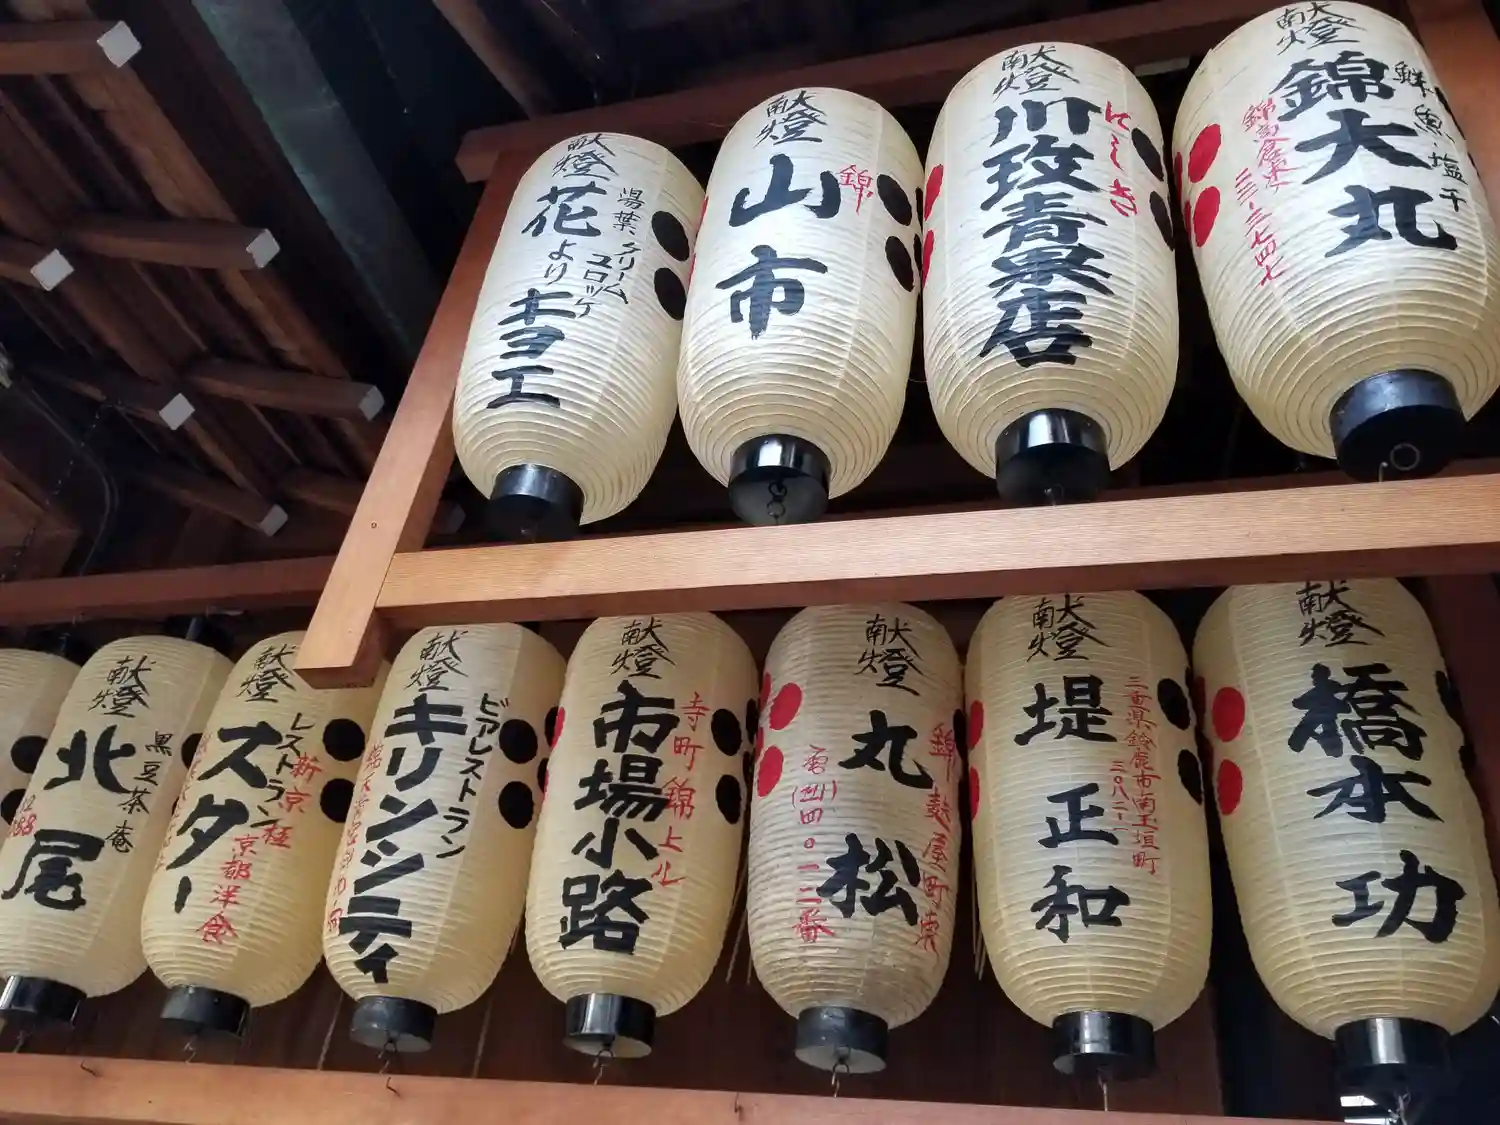 献燈
湯葉クリーム
ユロッケ
花より
キヨエ
献燈
錦
山市
献燈
にしき
川政青果店
献燈
鮮魚・塩干
錦大丸
錦高倉東
二二一-三七四七
献燈
黒豆茶庵
北尾
献燈
レストラン
スター
新京極
京都洋食
献燈
ビアレストラン
キリンシティ
献燈
市場小路
寺町錦上ル
献燈
丸松
錦麩屋町東
(四)四〇一二番
献燈
堤正和
三重県鈴鹿市南玉垣町
献燈
橋本功